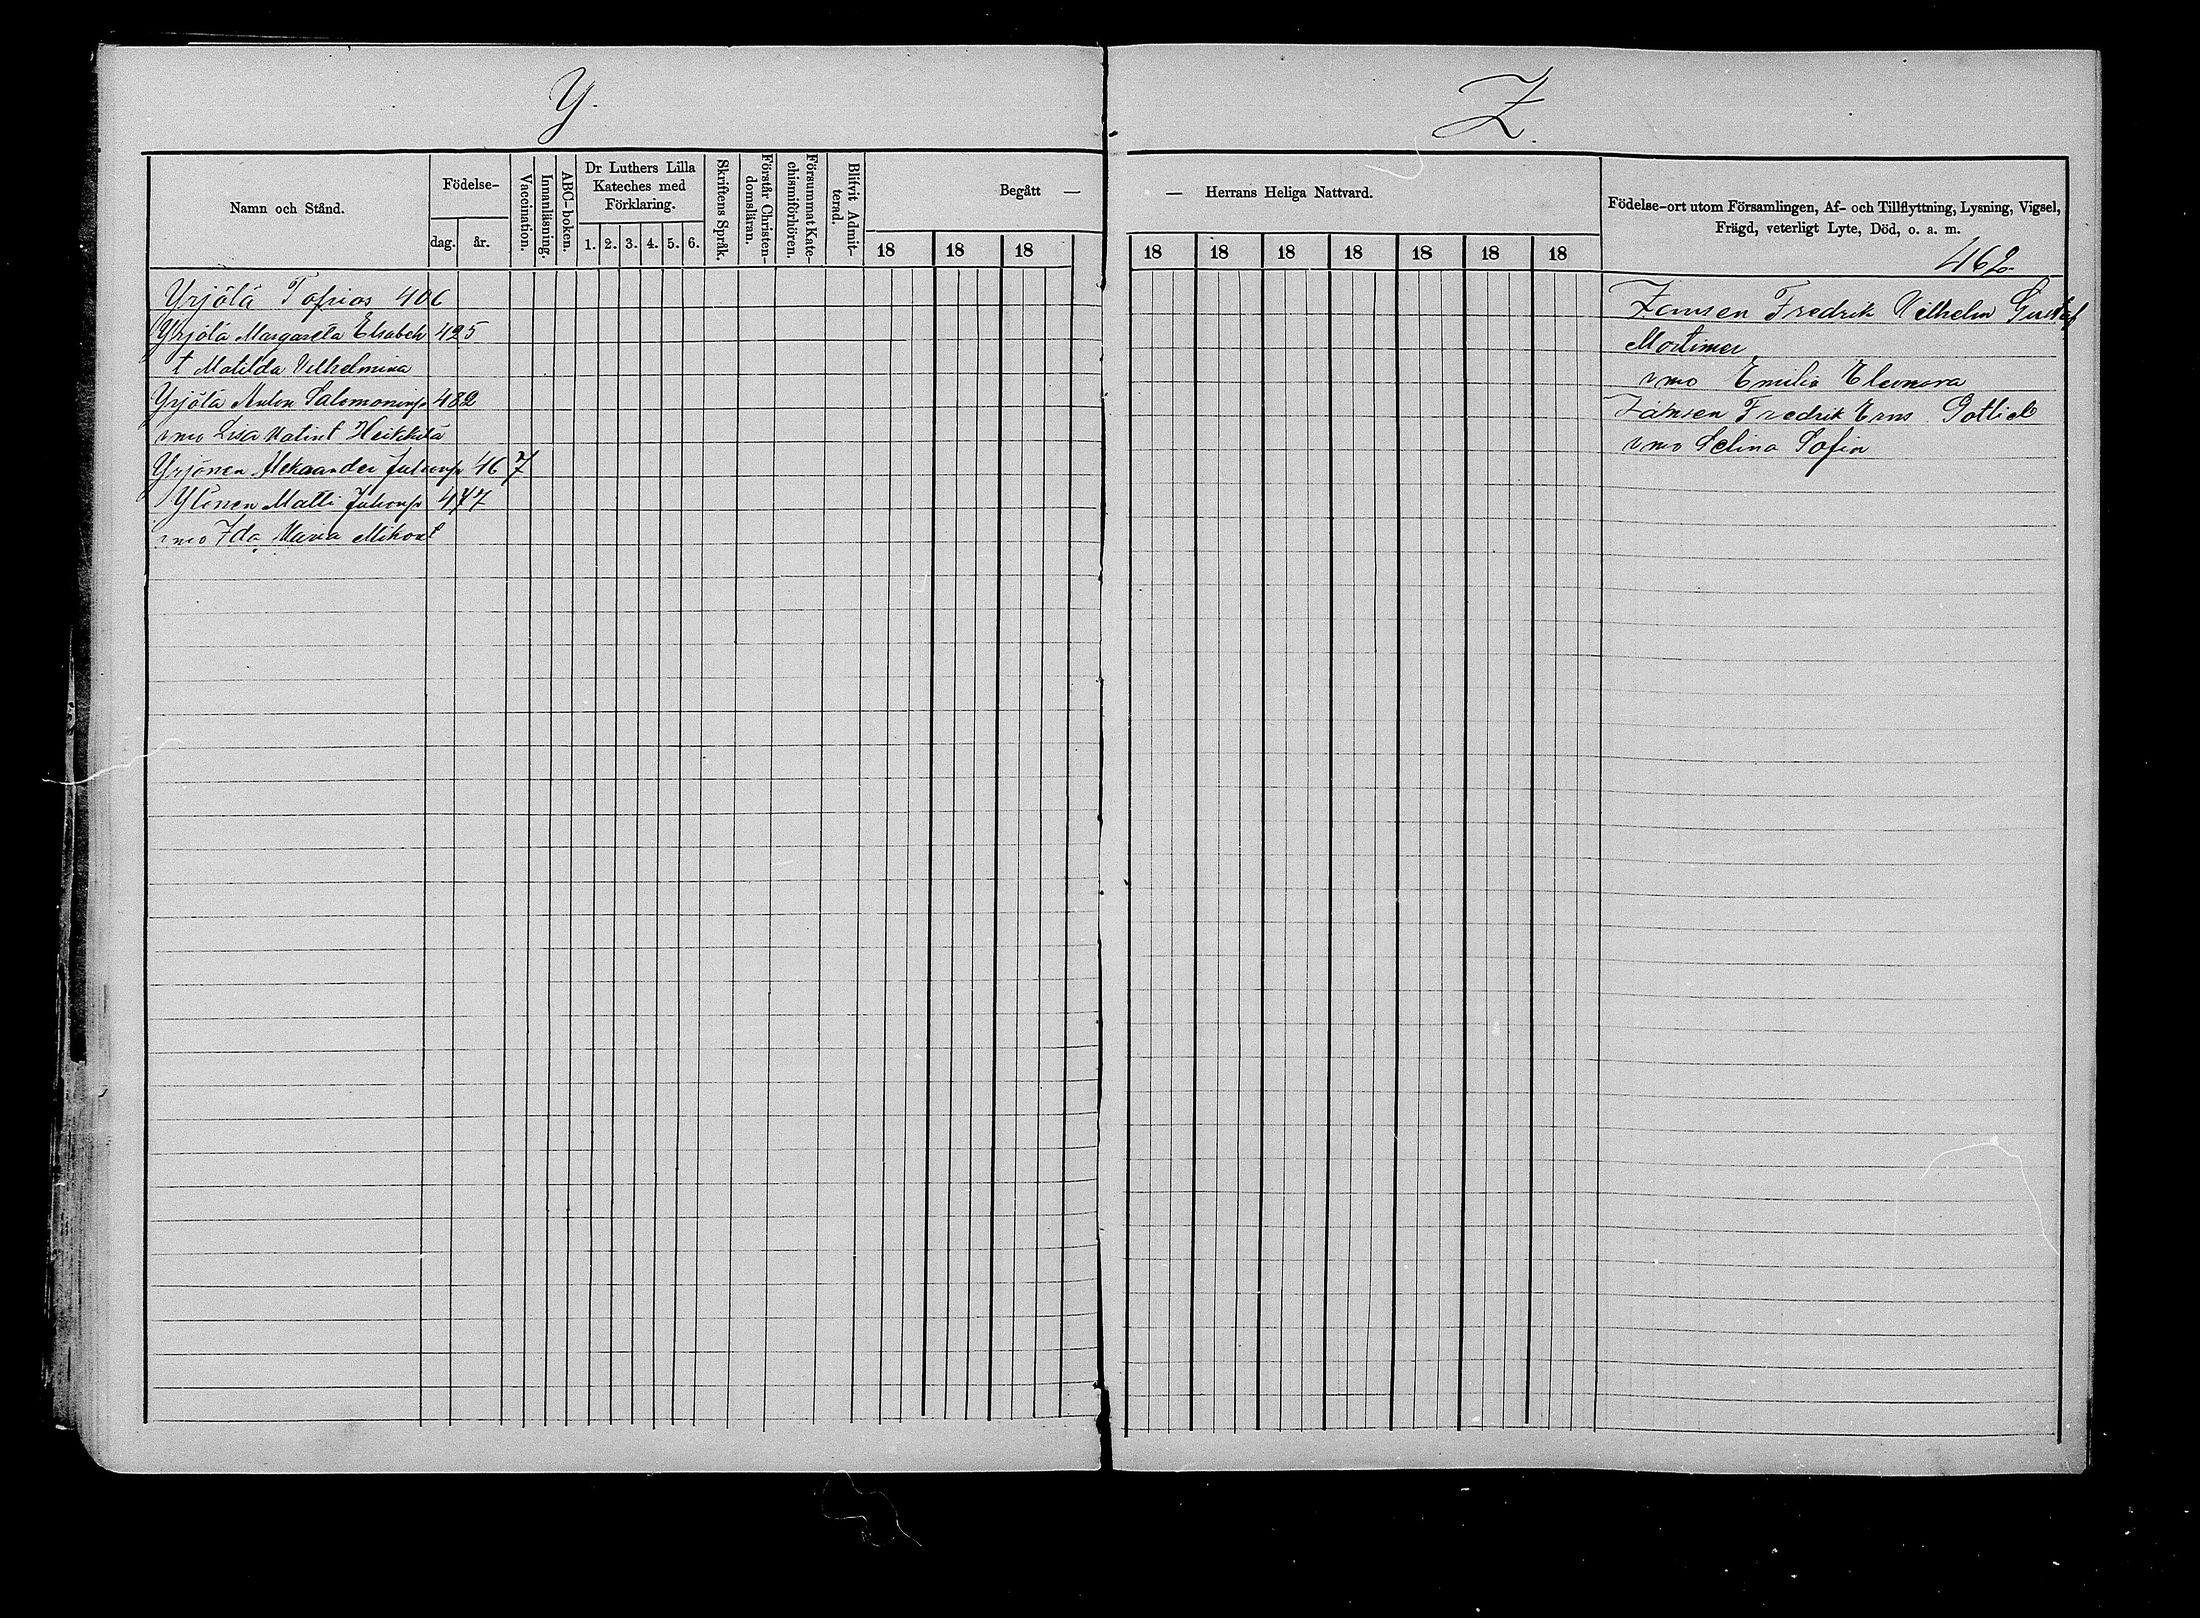 Y.
Namn och Stånd.
Födelse-
dag.
år.
Vaccination.
Innanläsning.
ABC-boken.
Dr Luthers Lilla
Kateches med
Förklaring.
1. 2. 3. 4. 5. 6.
Skriftens Språk.
Förstår Christen-
domsläran.
Försummat Kate-
chismiförhören.
Blifvit Admit-
terad.
Begått —
18 18 18
Yrjölä Tobias 406
Yrjölä Margareta Elisabeth 425
t Matilda Vilhelmina
Yrjölä Anton Salomonsp 482
vmo Lisa Matint Heikkilä
Yrjönen Aleksander Juhonp 467
Ylönen Matti Juhonp 477
vmo Ida Maria Mikont
Z.
— Herrans Heliga Nattvard.
18 18 18 18 18 18 18
Födelse-ort utom Församlingen, Af- och Tillflyttning, Lysning, Vigsel,
Frägd, veterligt Lyte, Död, o. a. m.
462
Zansen Fredrik Vilhelm Gustaf
Mortimer
vmo Emilia Eleonora
Zansen Fredrik Erns Gotlieb
vmo Selina Sofia